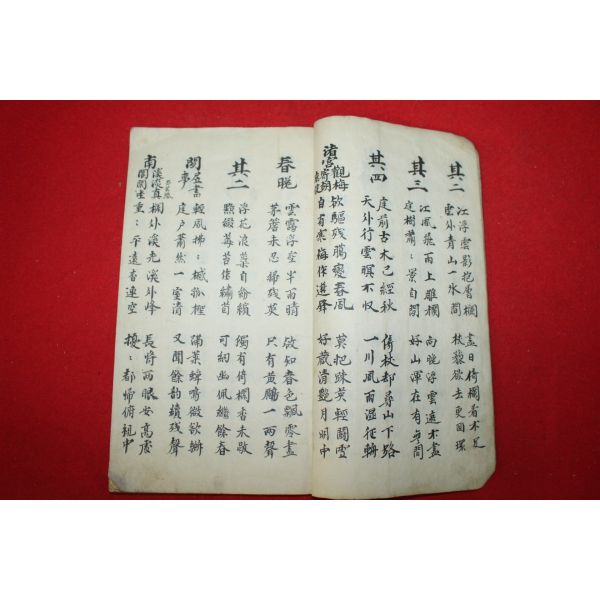 其二 江浮雲影抱層欄 盡日倚欄看不足
雲外青山一水間 枝藜欲去更回環
其三 江風飛雨上雕欄 向晚浮雲遠不盡
庭樹蕭〻景自閒 好山渾在有無間
其四 庭前古木已經秋 倚杖却尋山下路
天外行雲暝不收 一川風雨濕征輈
觀梅 欲驅殘臘變春風 莫把疎英輕鬪雪
自有寒梅作選鋒 好藏清艶月明中
春晚 雲霧浮空半雨晴 故知春色飄零盡
茅簷未忍掃殘英 只有黃鸝一兩聲
其二 浮花浪蘂自紛纷 獨有倚欄香未歇
點綴莓苔作繡茵 可紉幽佩繼餘春
閒居書事 輕風拂〻 滿葉蟬嘶微欲斷
庭户蕭然一室清 又聞餘韵續殘聲
南溪 欄外溪光溪外峰 長將兩眼安高處
重〻平遠杳連空 擾〻都歸俯視中